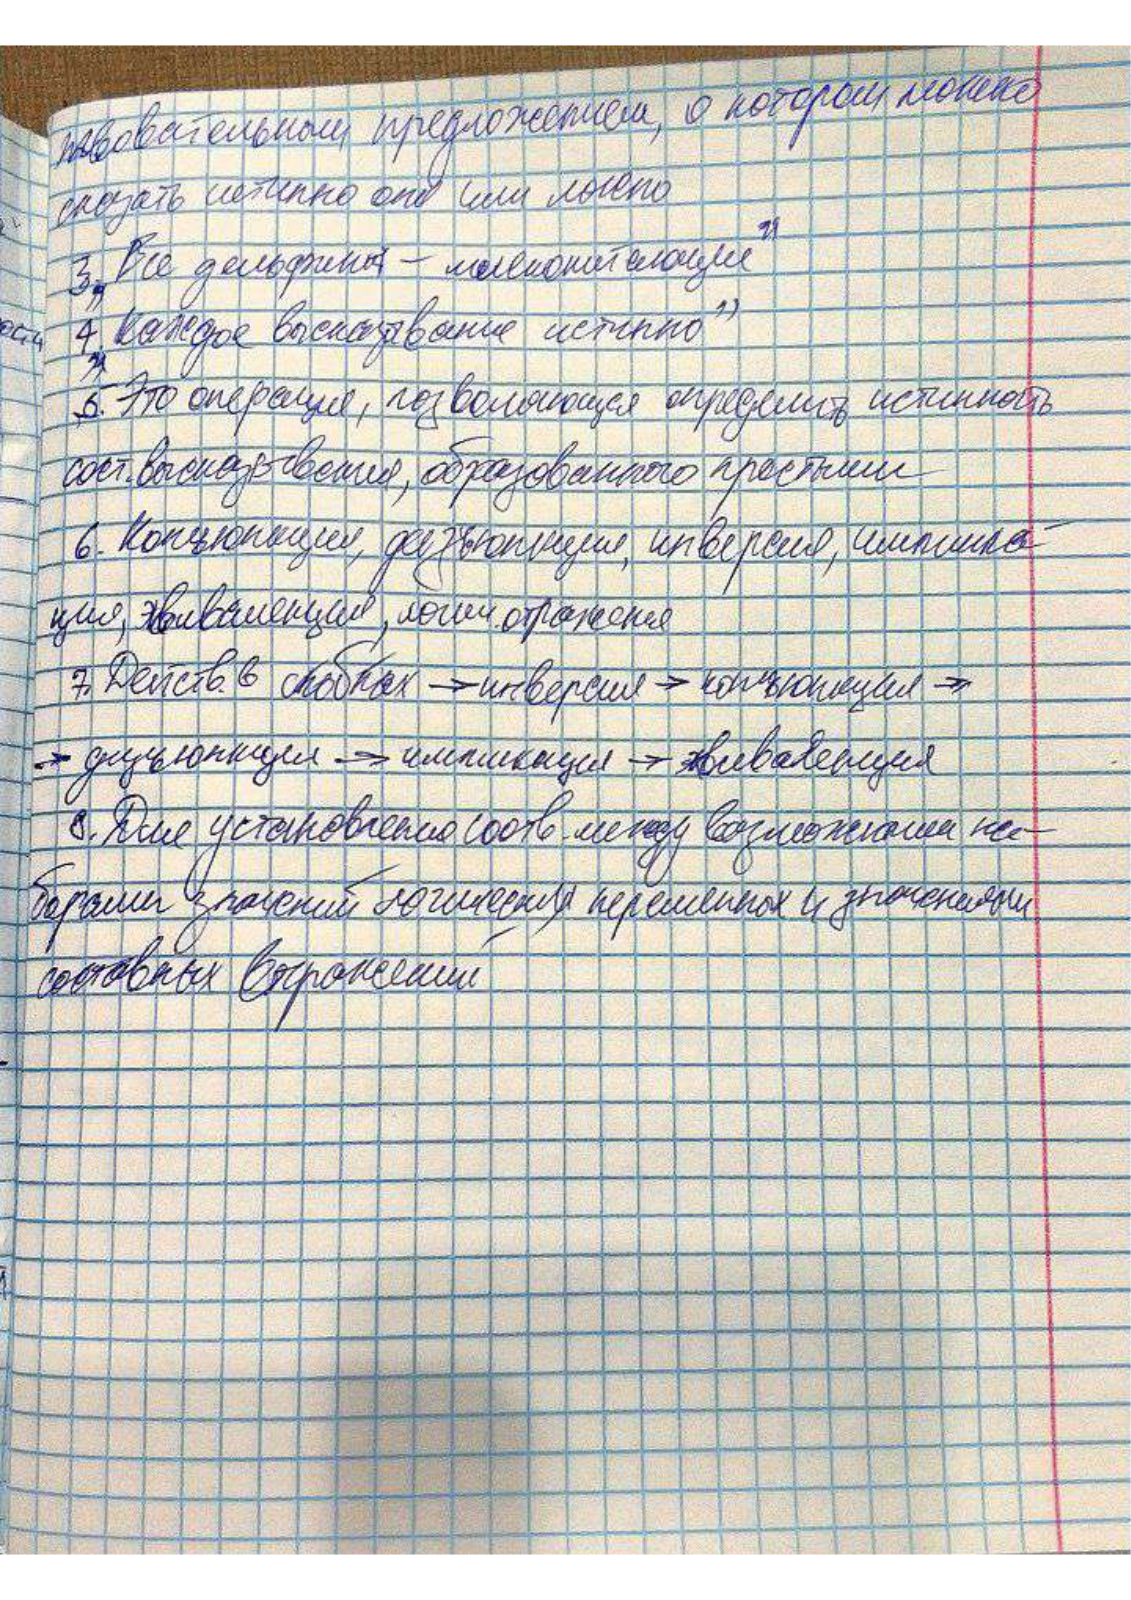 повествовательным предложением, о котором можно
сказать истинно оно или ложно
3. „Все дельфины – млекопитающие"
4. „Каждое высказывание истинно"
5. Это операция, позволяющая определить истинность
сост. высказывания, образованного простыми
6. Конъюнкция, дизъюнкция, инверсия, импликa-
ция, эквиваленция, логич. отражения
7. Действ. в скобках → инверсия → конъюнкция →
→ дизъюнкция → импликация → эквиваленция
8. Для установления соотв. между возможными на-
борами значений логических переменных и значениями
составных выражений